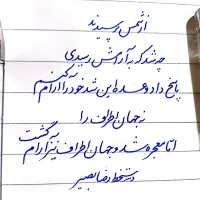 از شمس پرسیدند
چه شد که به آرامش رسیدی
پاسخ داد وعده این شد خود را آرام کنم
نه جهان اطراف را
اما معجزه شد و جهان اطراف نیز آرام گشت
دستخط رضا بصیر